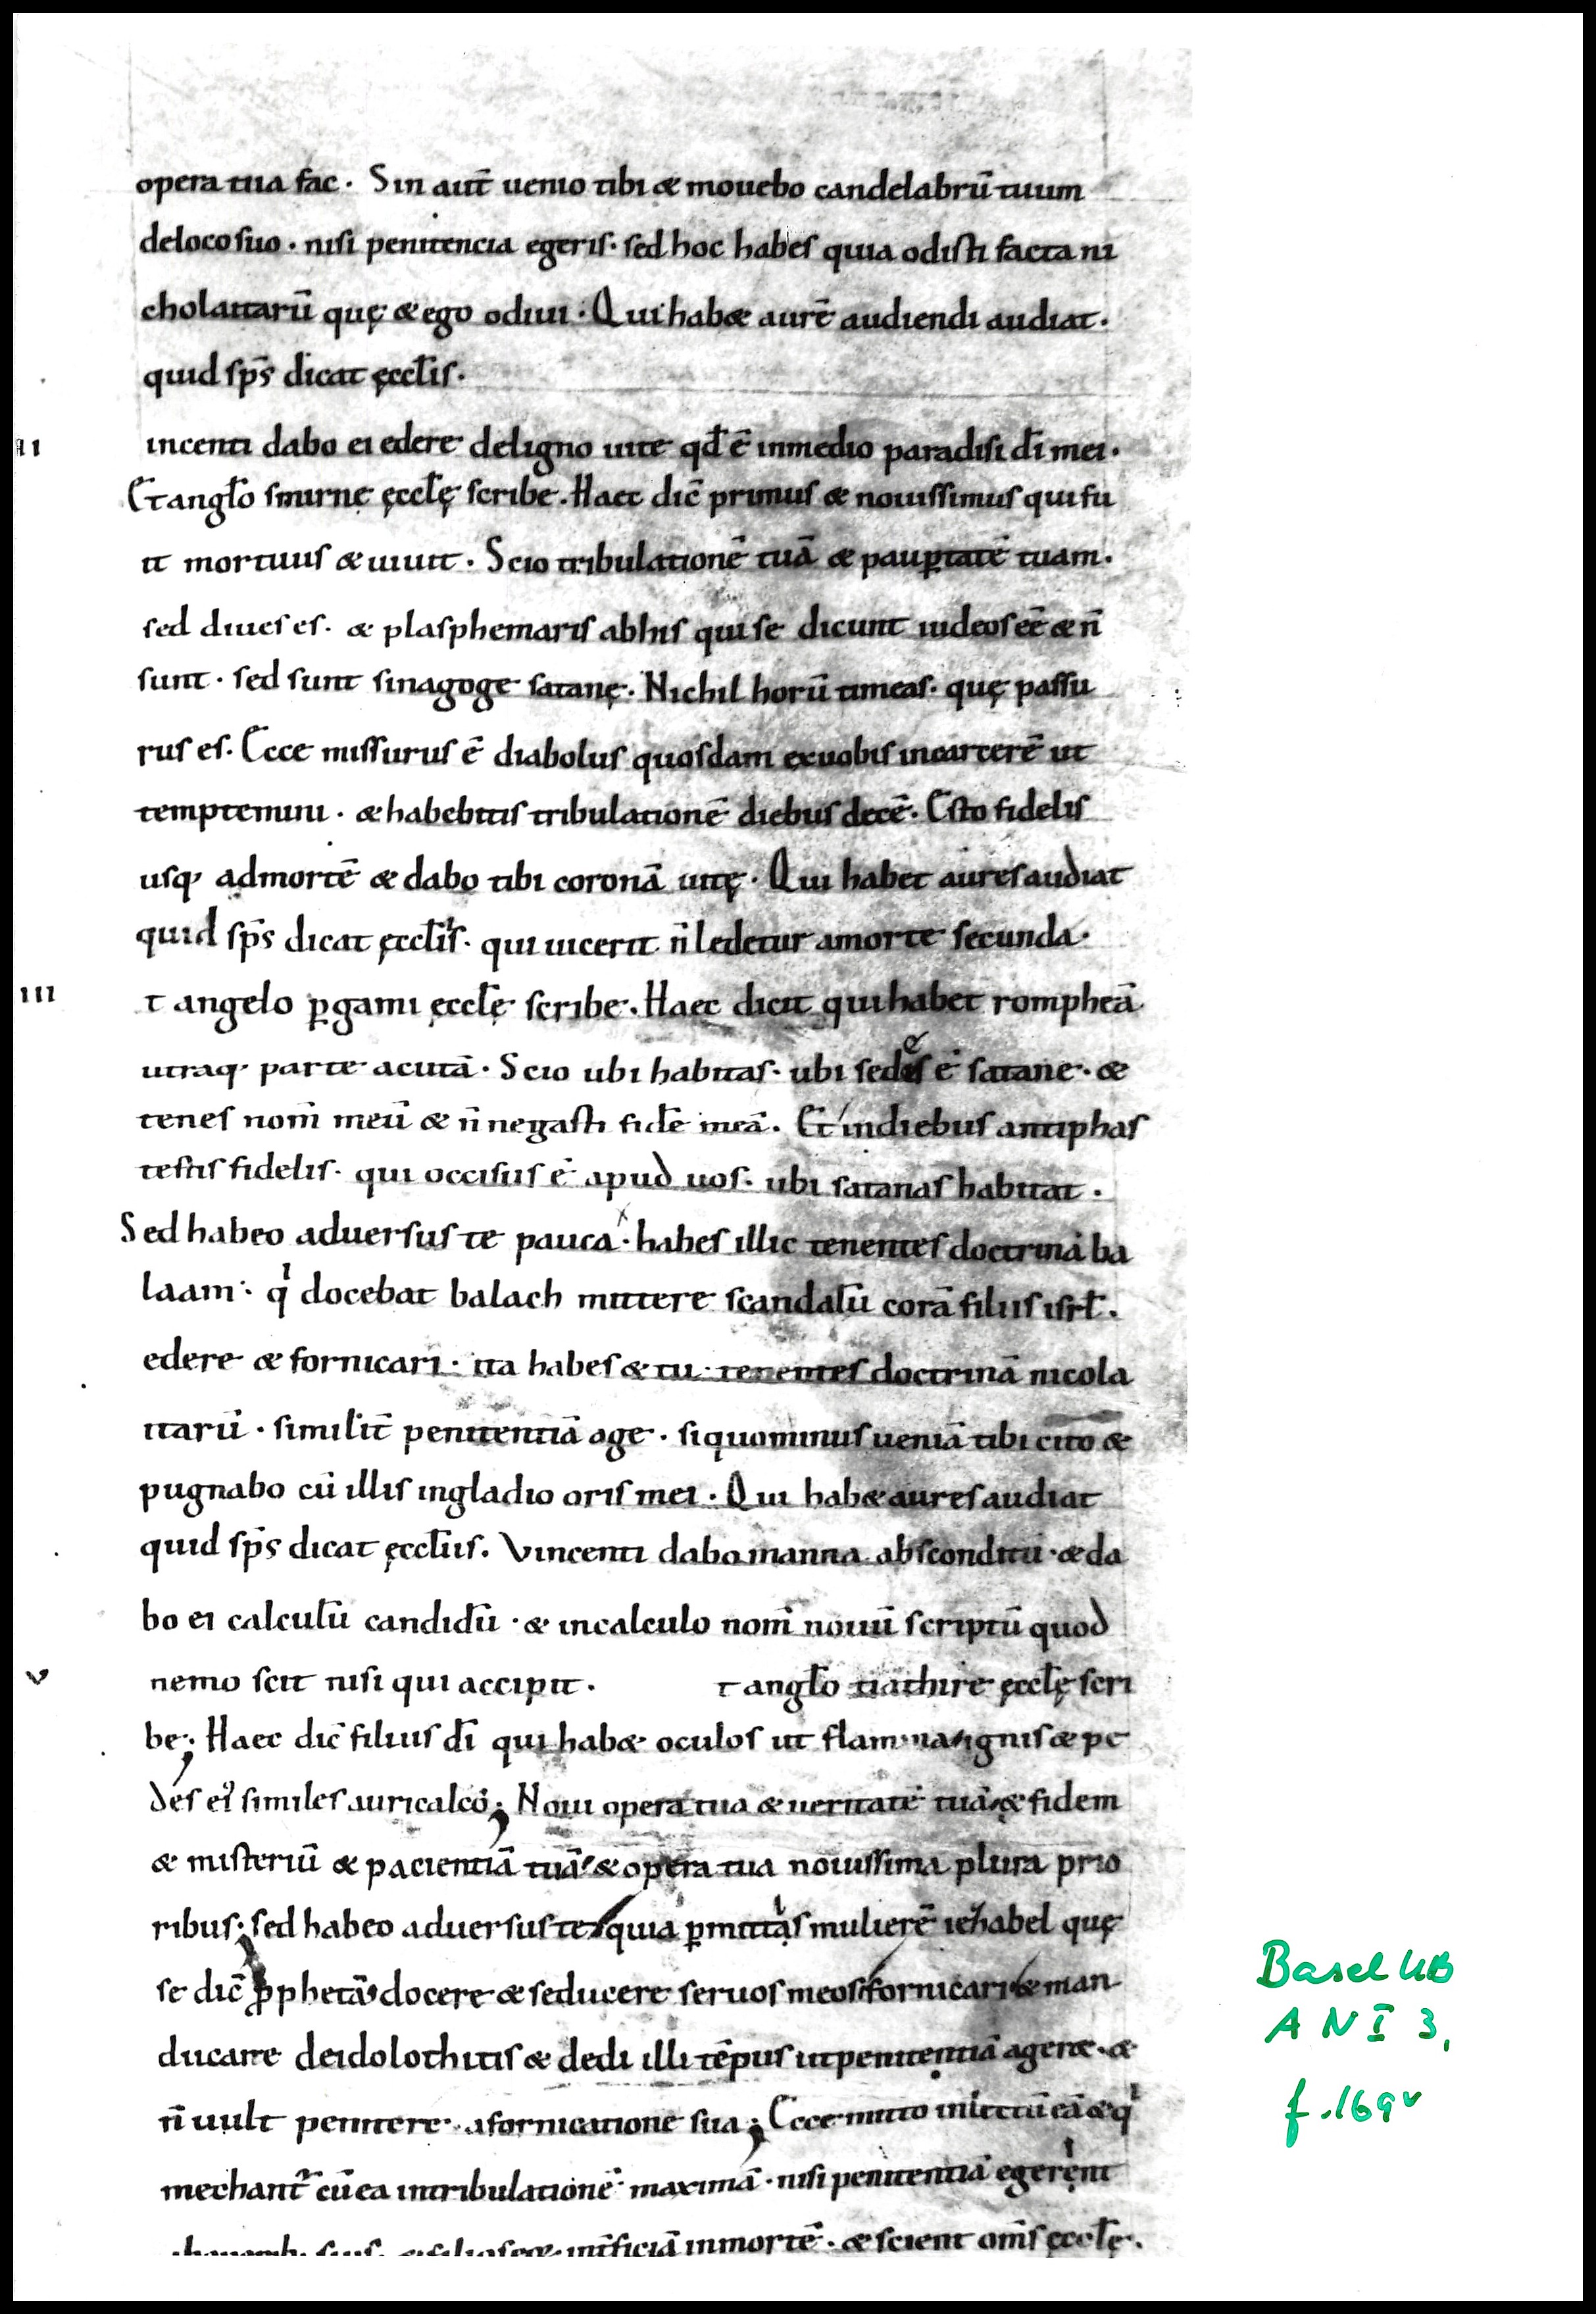 opera tua fac. Sin aut̄ uenio tibi & mouebo candelabrū tuum
deloco suo. nisi penitencia egeris. sed hoc habes quia odisti facta ni
cholaitarū quę & ego odiui. Qui hab& aurē audiendi audiat.
quid sp̄s dicat ęccl̄is.
II incenti dabo ei edere deligno uite qd̄ ē inmedio paradisi dī mei.
Et angl̄o smirnę ęccl̄ę scribe. Haec dic̄ primus & nouissimus qui fu
it mortuus & uiuit. Scio tribulationē tuā & paup̱tatē tuam.
sed diues es. & plasphemaris abhis qui se dicunt iudeos eē & n̄
sunt. sed sunt sinagoge satanę. Nichil horū timeas. quę passu
rus es. Ecce missurus ē diabolus quosdam exuobis incarcerē ut
temptemini. & habebitis tribulationē diebus decē. Esto fidelis
usq; admortē & dabo tibi coronā uitę. Qui habet aures audiat
quid sp̄s dicat ęccl̄is. qui uicerit n̄ ledetur amorte secunda.
III t angelo p̱gami ęccl̄ę scribe. Haec dicit qui habet rompheā
utraq; parte acutā. Scio ubi habitas. ubi sedes ē satane. &
tenes nom̄ meū & n̄ negasti fidē meā. Et indiebus antiphas
testis fidelis. qui occisus ē apud uos. ubi satanas habitat.
Sed habeo aduersus te pauca. habes illic tenentes doctrinā ba
laam. qi docebat balach mittere scandalū corā filiis isrl̄.
edere & fornicari. ita habes & tu. tenentes doctrinā nicola
itarū. similit̄ penitentiā age. si quominus ueniā tibi cito &
pugnabo cū illis ingladio oris mei. Qui hab& aures audiat
quid sp̄s dicat ęccl̄iis. Vincenti dabo manna absconditū. & da
bo ei calculū candidū. & incalculo nom̄ nouū scriptū quod
V nemo scit nisi qui accipit. t angl̄o tiathire ęccl̄ę scri
be; Haec dic̄ filius dī qui hab& oculos ut flamma ignis & pe
des ei' similes auricalco; Noui opera tua & ueritatē tuā & fidem
& misteriū & pacientiā tuā & opera tua nouissima plura prio
ribus; sed habeo aduersus te quia p̱mittas mulierē iehabel quę
se dic̄ p̱phetā docere & seducere seruos meos fornicari & man
ducare deidolothitis & dedi illi tēpus ut penitentiā ager&. &
n̄ uult penitere. afornicatione sua; Ecce mitto inlectū eā & qi
mechant̄ cū ea intribulationē maximā. nisi penitentiā egerint
& filios inmortē. & scient om̄s ęccl̄ę.
Basel UB
A N I 3,
f. 169v